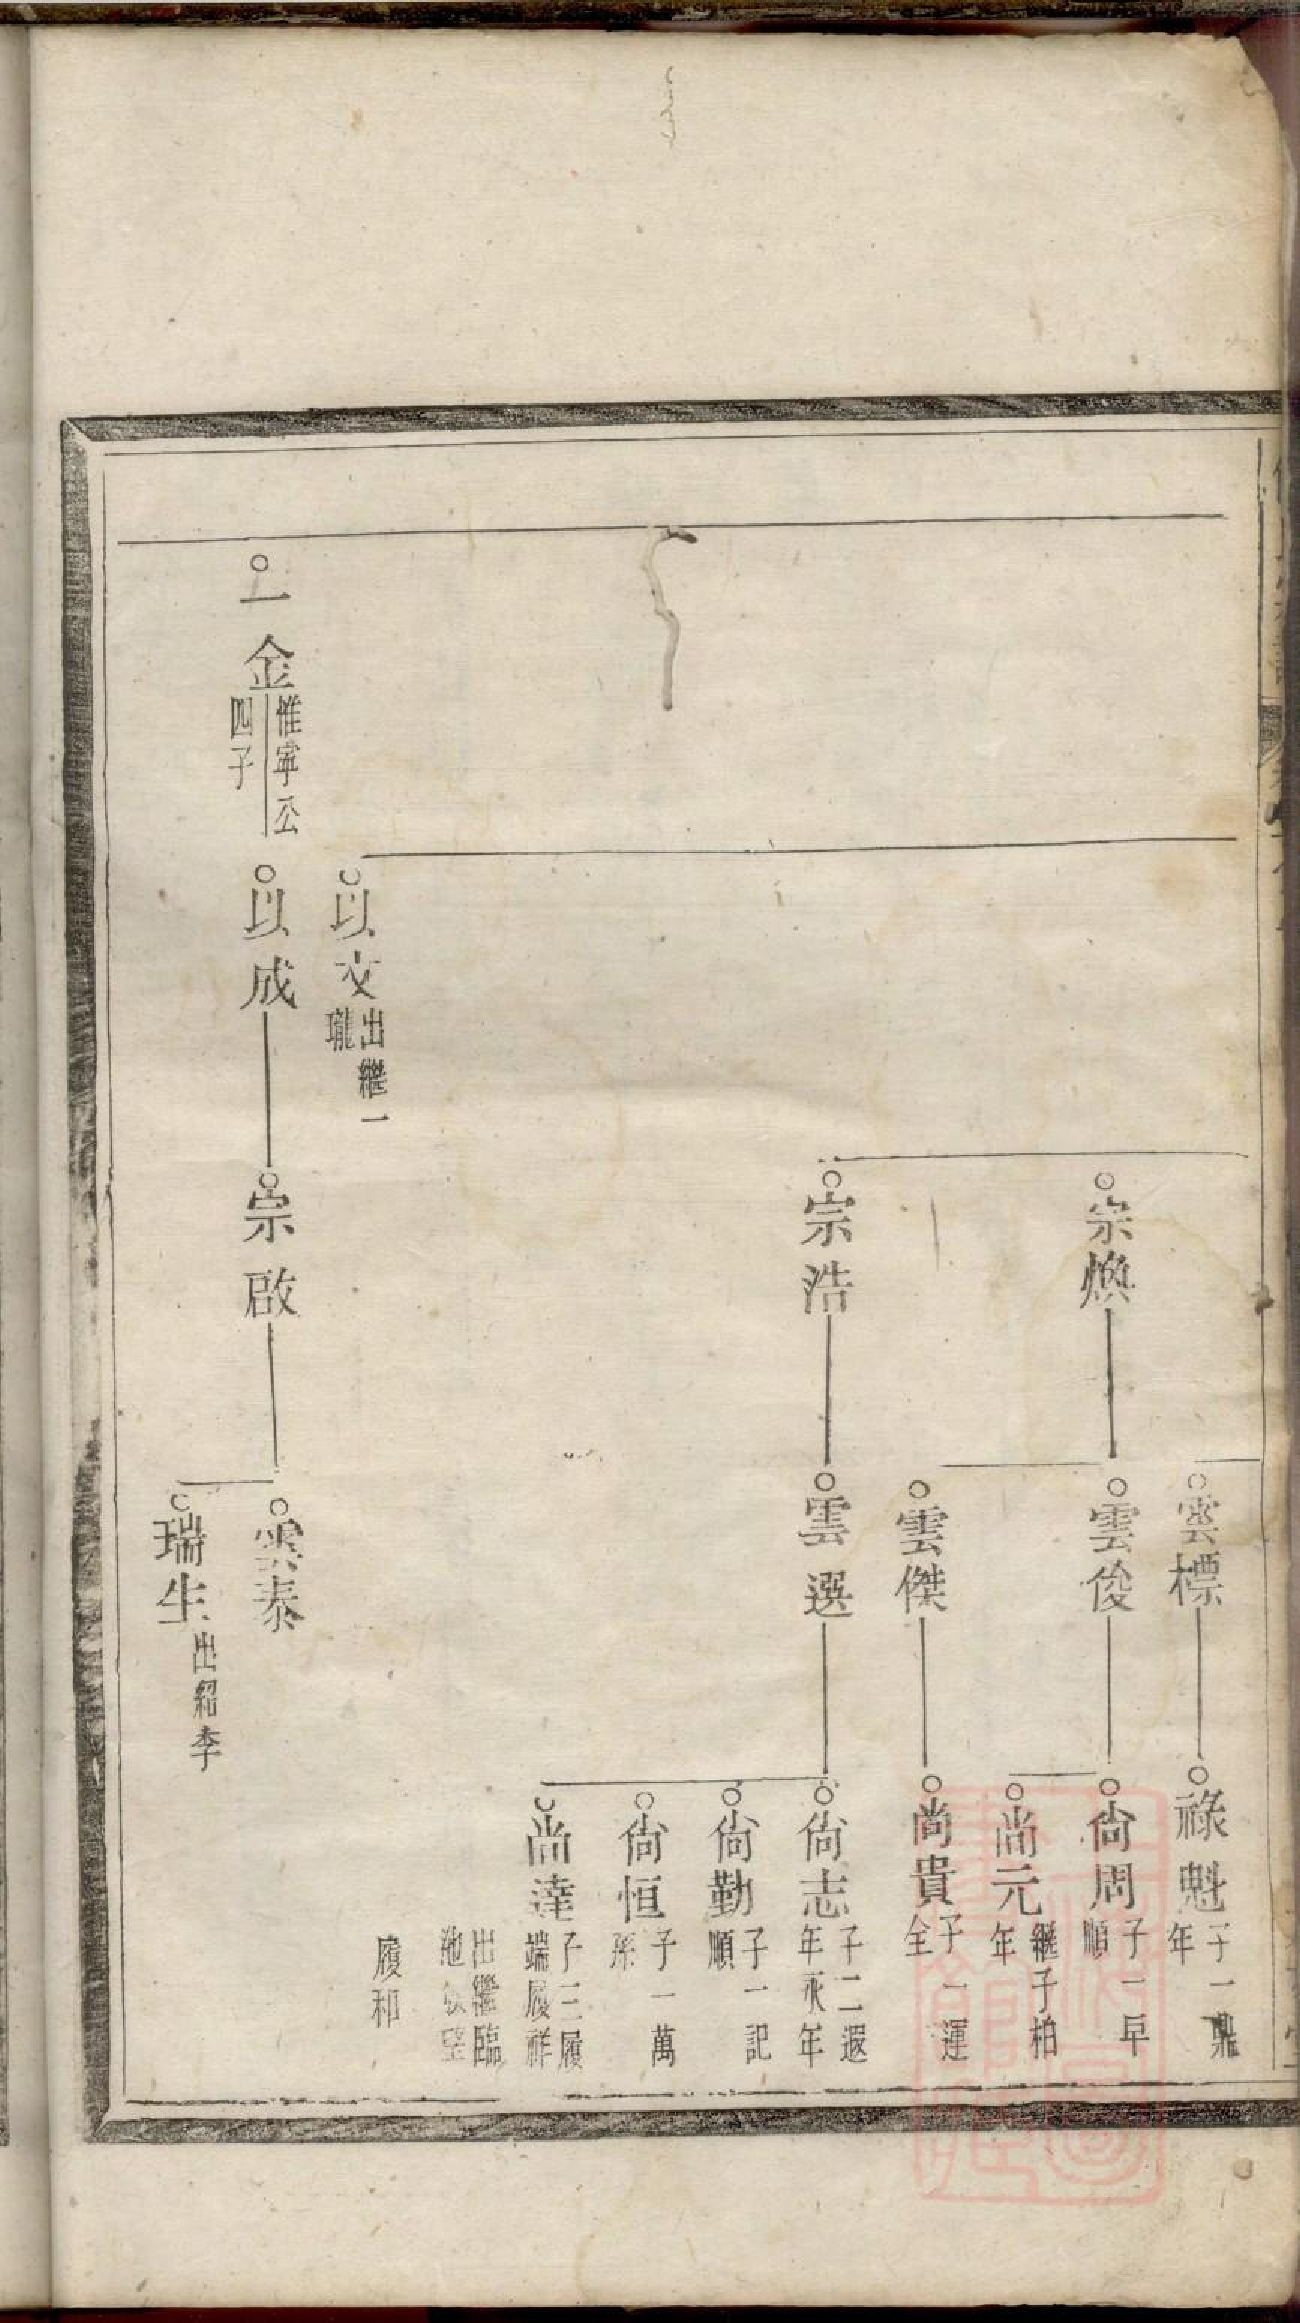 雲標
祿魁
子一鼎
年
宗煥
雲俊
尙周
子一早
順
尚元
繼子柏
年
雲傑
尚貴
子一運
全
宗浩
雲選
尙志
子二遐
年永年
尙勤
子一記
順
尙恒
子一萬
孫
尚達
子三履
端履祥
出繼臨
履和
以文
出繼一
瓏
一金
惟寜公
四子
以成
宗啟
雲泰
瑞生
出紹李